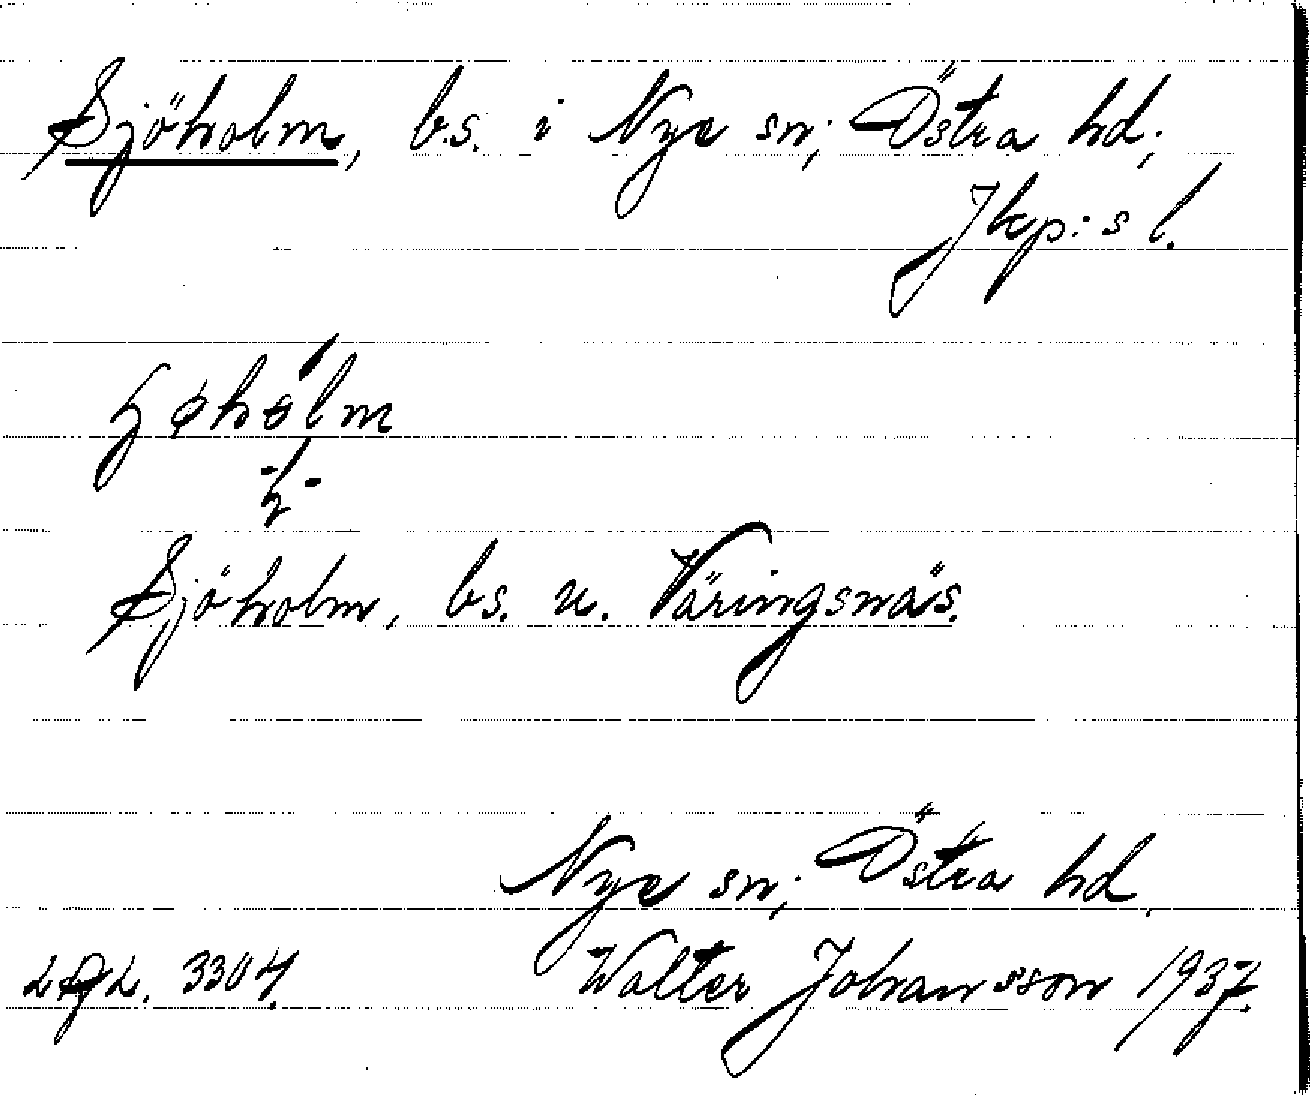 Sjöholm, bs. i Nye sn; Östra hd;
Jkp:s l.
Sjöholm, bs. u. Väringsnäs.
Nye sn; Östra hd.
3304. Walter Johansson 1937.